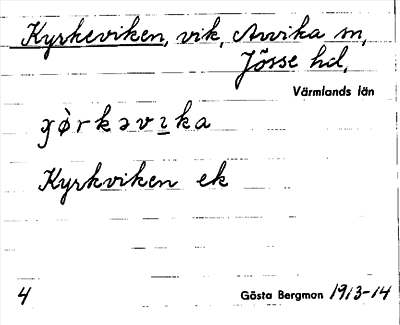 Kyrkeviken, vik, Arvika sn,
Jösse hd,
Värmlands län
Kyrkviken ek
4 Gösta Bergman 1913-14